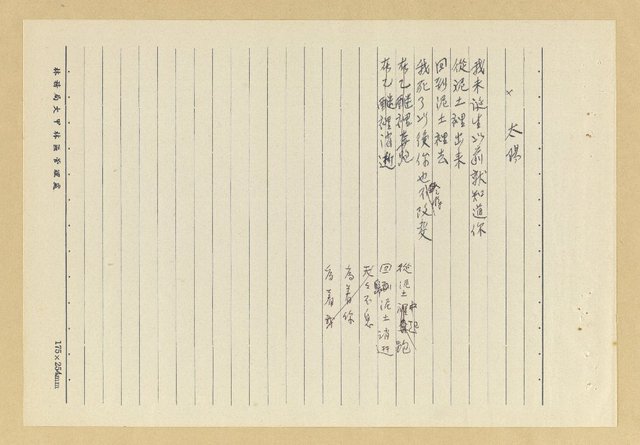 太陽
×
我未誕生以前就知道你
從泥土裡出來
回到泥土裡去
我死了以後你也不改變
在乙醚裡奔跑
在乙醚裡消逝
從泥土裡跑
回泥土消逝
天天不息
為着你
為着
林務局大甲林區管理處
175×254mm